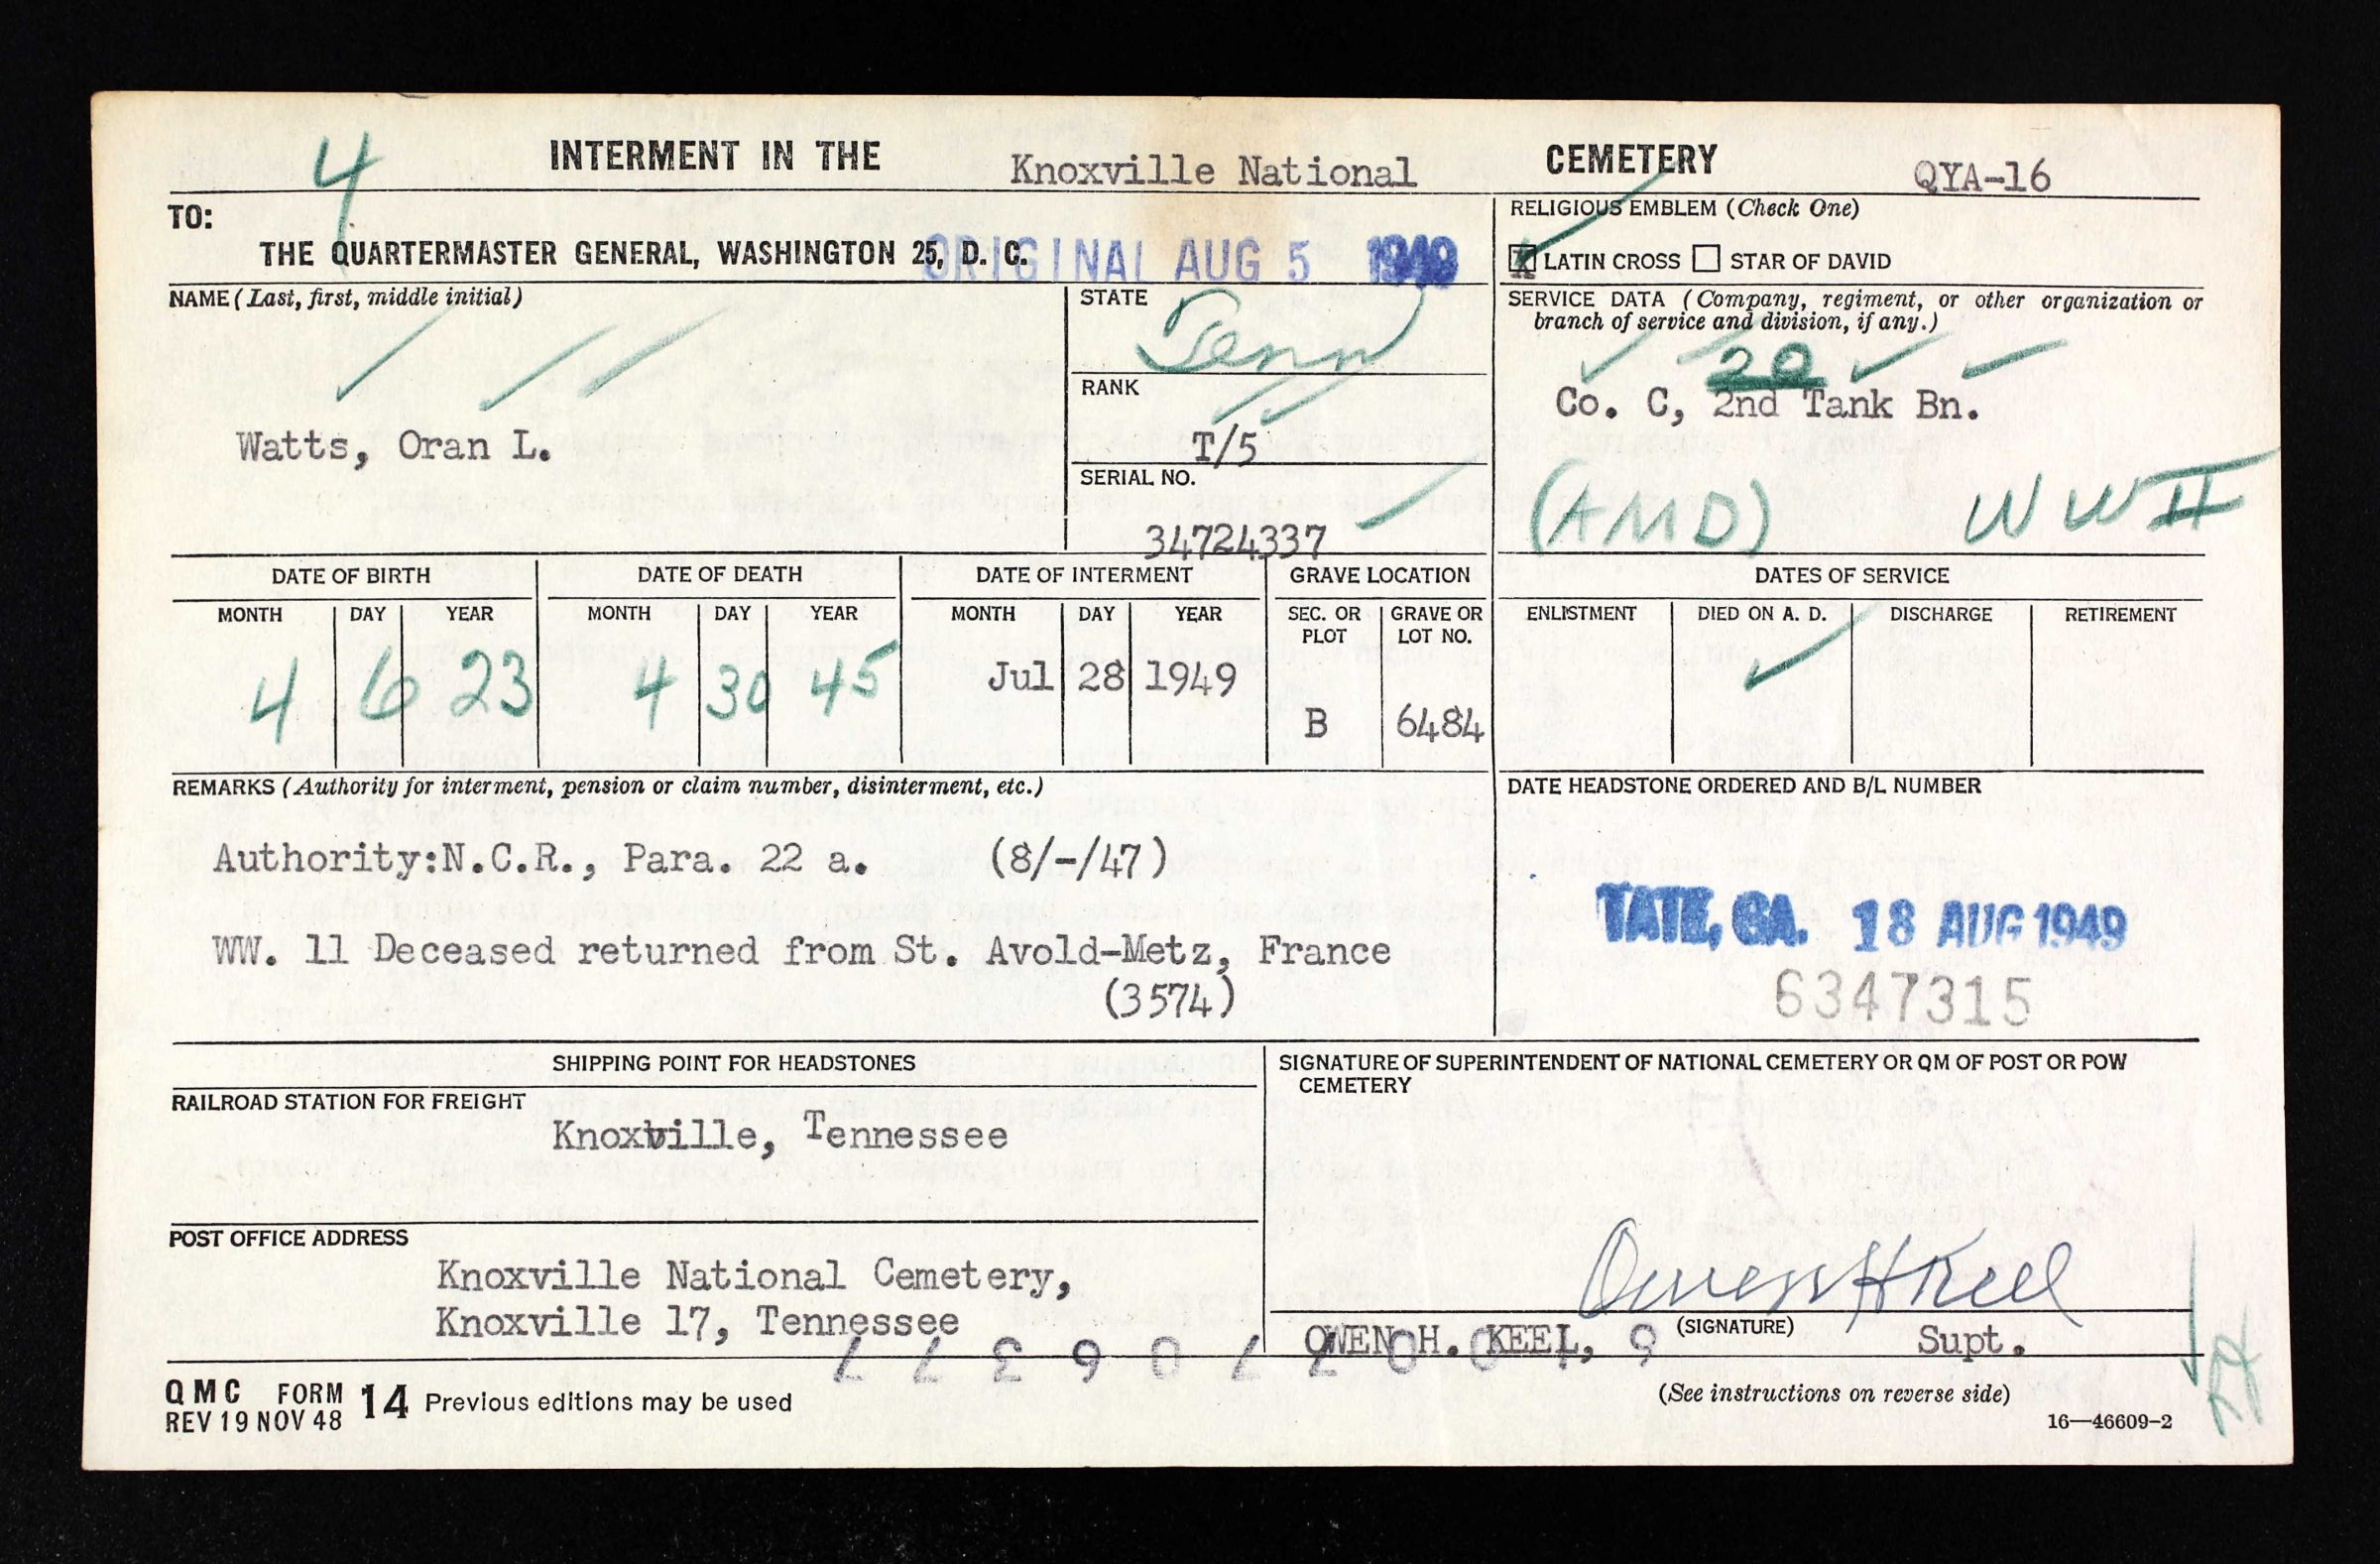 4
INTERMENT IN THE Knoxville National CEMETERY QYA-16
TO:
THE QUARTERMASTER GENERAL, WASHINGTON 25, D. C.
ORIGINAL AUG 5 1949
RELIGIOUS EMBLEM (Check One)
X LATIN CROSS STAR OF DAVID
NAME (Last, first, middle initial)
Watts, Oran L.
STATE
Tenn
RANK
T/5
SERIAL NO.
34724337
SERVICE DATA (Company, regiment, or other organization or
branch of service and division, if any.)
20
Co. C, 2nd Tank Bn.
(AMD) WWII
DATE OF BIRTH DATE OF DEATH DATE OF INTERMENT GRAVE LOCATION DATES OF SERVICE
MONTH DAY YEAR MONTH DAY YEAR MONTH DAY YEAR SEC. OR PLOT GRAVE OR LOT NO. ENLISTMENT DIED ON A. D. DISCHARGE RETIREMENT
4 6 23 4 30 45 Jul 28 1949 B 6484
REMARKS (Authority for interment, pension or claim number, disinterment, etc.)
Authority:N.C.R., Para. 22 a. (8/-/47)
WW. 11 Deceased returned from St. Avold-Metz, France
(3574)
DATE HEADSTONE ORDERED AND B/L NUMBER
TATE, GA. 18 AUG 1949
6347315
SHIPPING POINT FOR HEADSTONES
RAILROAD STATION FOR FREIGHT
Knoxville, Tennessee
POST OFFICE ADDRESS
Knoxville National Cemetery,
Knoxville 17, Tennessee
SIGNATURE OF SUPERINTENDENT OF NATIONAL CEMETERY OR QM OF POST OR POW
CEMETERY
Owen H Keel
(SIGNATURE)
OWEN H. KEEL, Supt.
QMC FORM 14 Previous editions may be used
REV 19 NOV 48
(See instructions on reverse side)
16—46609-2